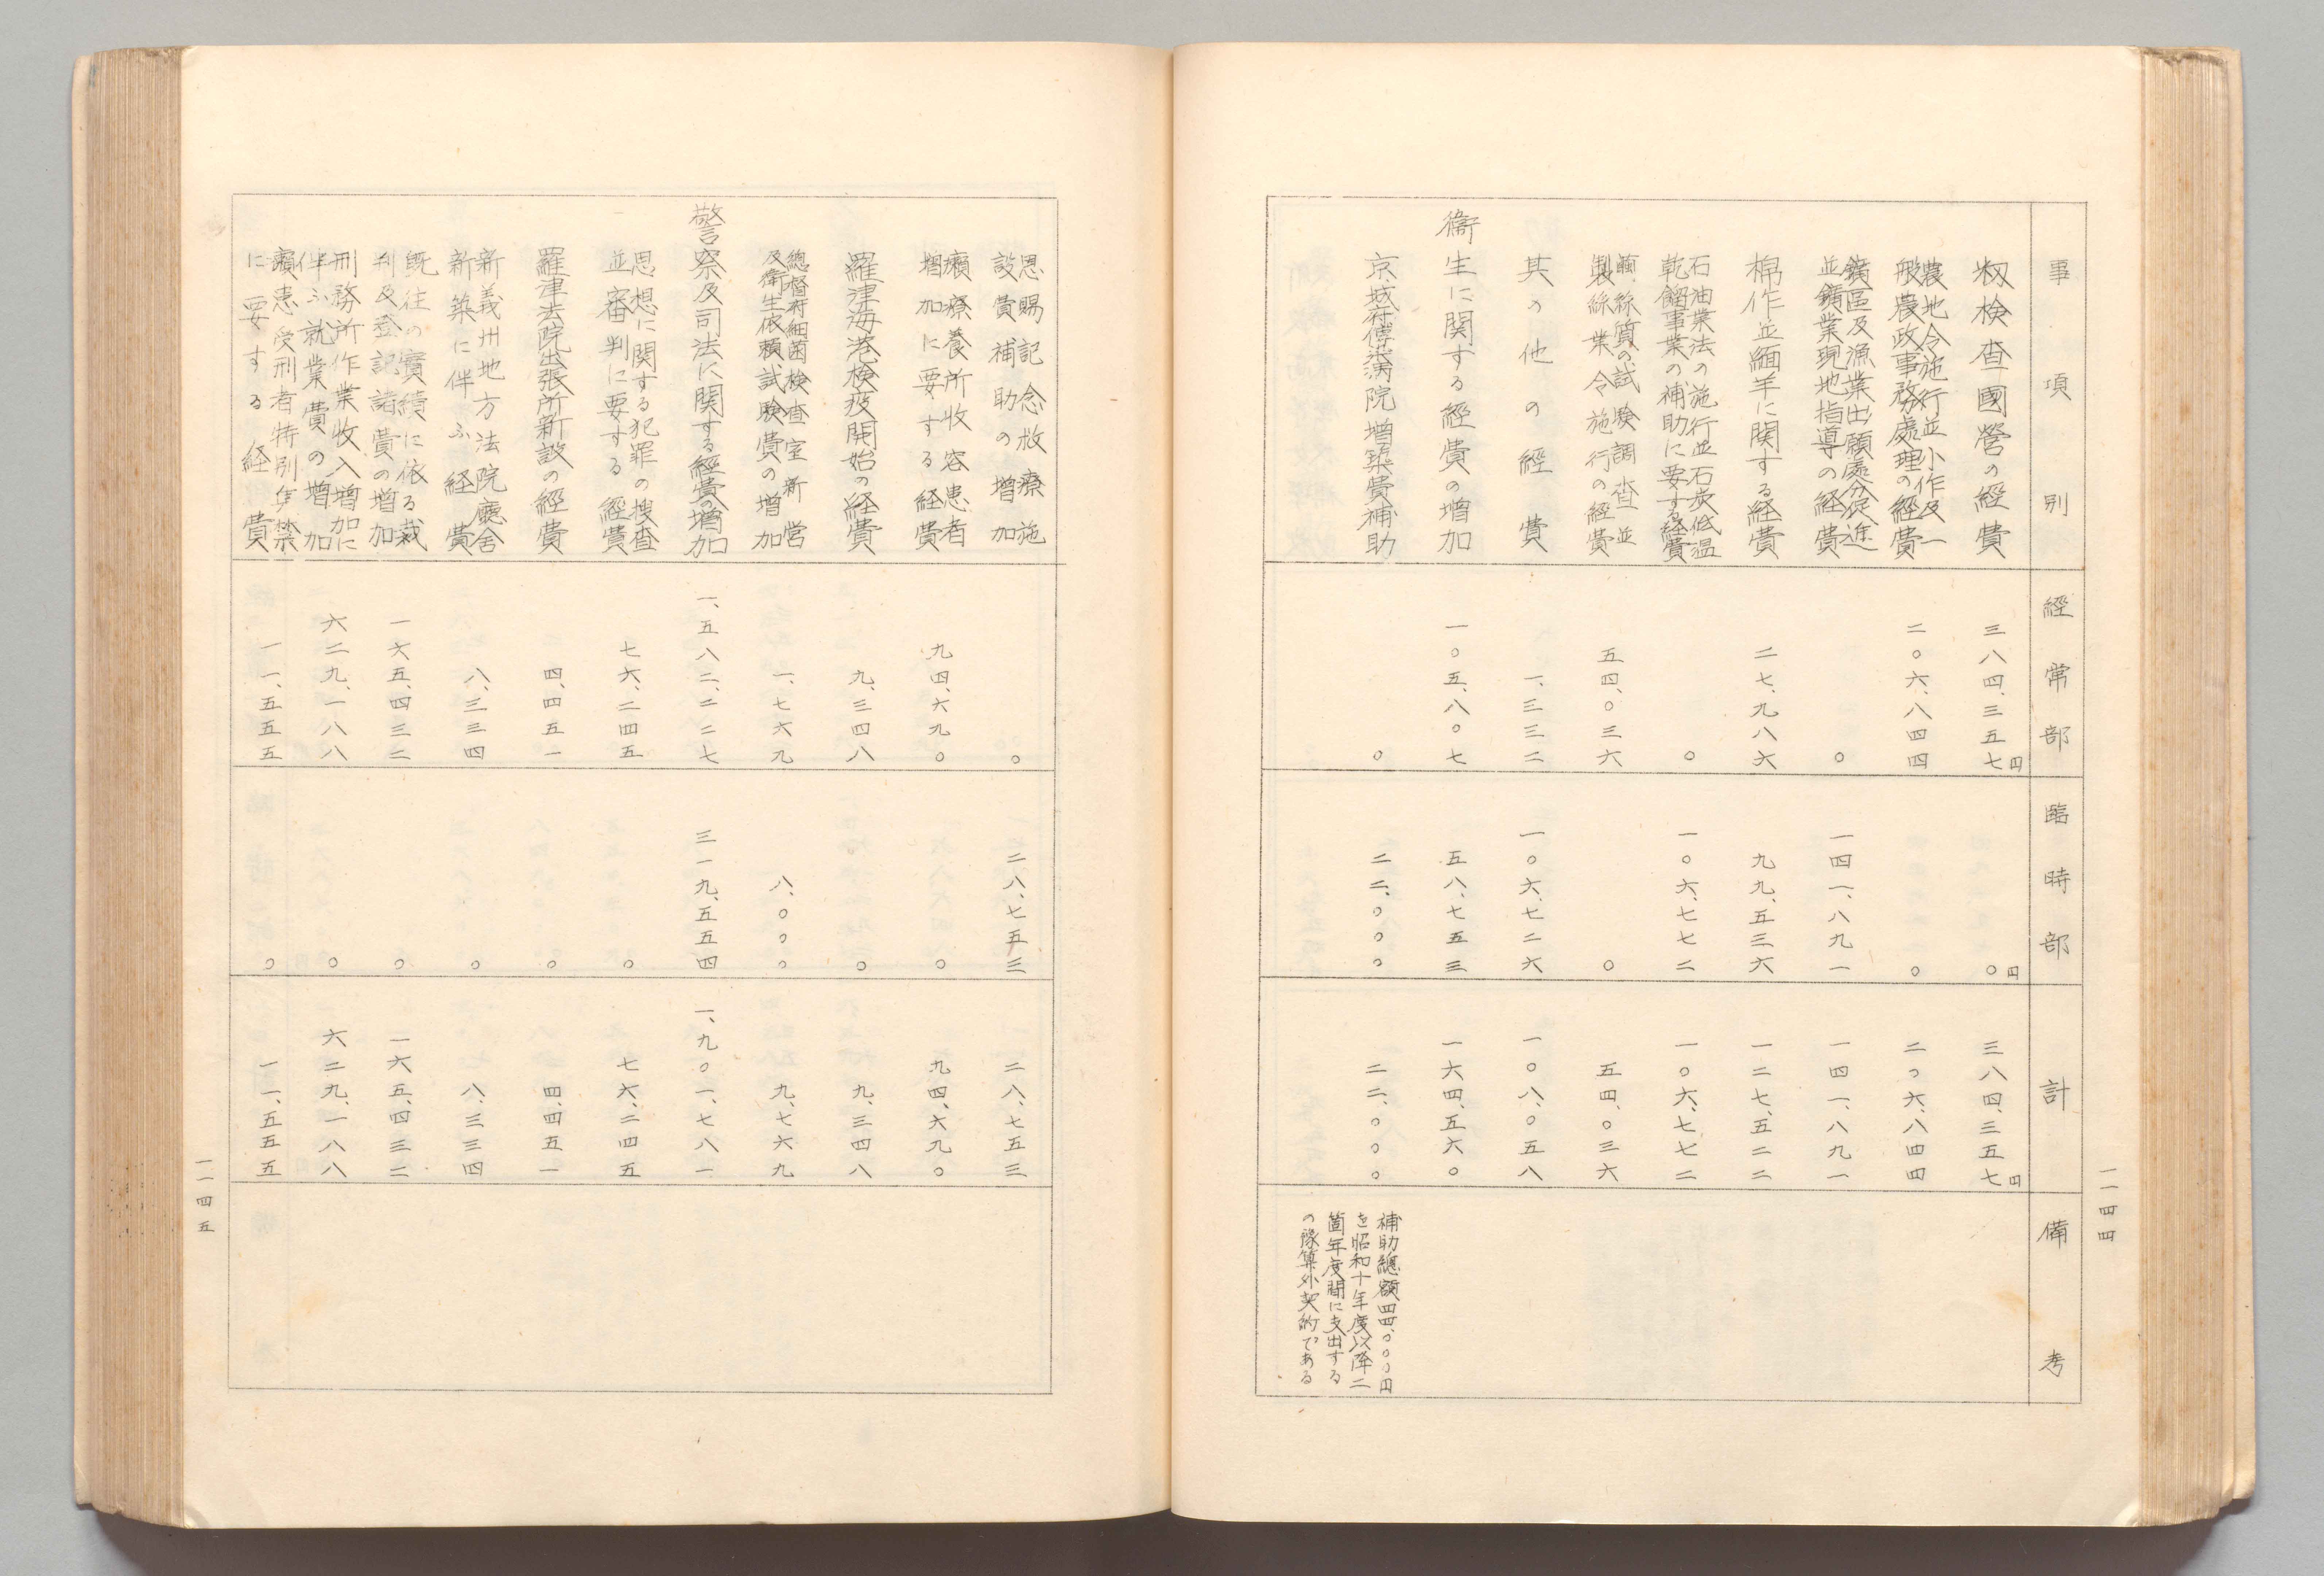 一一四四
事項別
經常部
臨時部
計
備考
籾検査國營の経費
三八四、三五七円
〇円
三八四、三五七円
農地令施行並小作及一
般農政事務處理の經費
二〇六、八四四
〇
二〇六、八四四
鑛區及漁業出願處分促進
並鑛業現地指導の経費
〇
一四一、八九一
一四一、八九一
棉作並緬羊に関する経費
二七、九八六
九九、五三六
一二七、五二二
石油業法の施行並石炭低温
乾餾事業の補助に要する経費
〇
一〇六、七七二
一〇六、七七二
繭絲質の試験調査並
製絲業令施行の経費
五四、〇三六
〇
五四、〇三六
其の他の經費
一、三三二
一〇六、七二六
一〇八、〇五八
衞生に関する經費の増加
一〇五、八〇七
五八、七五三
一六四、五六〇
京城府傳染病院増築費補助
〇
二二、〇〇〇
二二、〇〇〇
補助總額四四、〇〇〇円
を昭和十年度以降二
箇年度間に支出する
の豫算外契約である
恩賜記念救療施
設費補助の増加
〇
二八、七五三
二八、七五三
癩療養所收容患者
増加に要する経費
九四、六九〇
〇
九四、六九〇
羅津海港検疫開始の経費
九、三四八
〇
九、三四八
總督府細菌検査室新営
及衞生依頼試験費の増加
一、七六九
八、〇〇〇
九、七六九
警察及司法に関する經費の増加
一、五八二、二二七
三一九、五五四
一、九〇一、七八一
思想に関する犯罪の搜査
並審判に要する経費
七六、二四五
〇
七六、二四五
羅津法院出張所新設の經費
四、四五一
〇
四、四五一
新義州地方法院廳舍
新築に伴ふ経費
八、三三四
〇
八、三三四
既往の實績に依る裁
判及登記諸費の増加
一六五、四三二
〇
一六五、四三二
刑務所作業收入増加に
伴ふ就業費の増加
六二九、一八八
〇
六二九、一八八
癩患受刑者特別拘禁
に要する経費
一一、五五五
〇
一一、五五五
一一四五